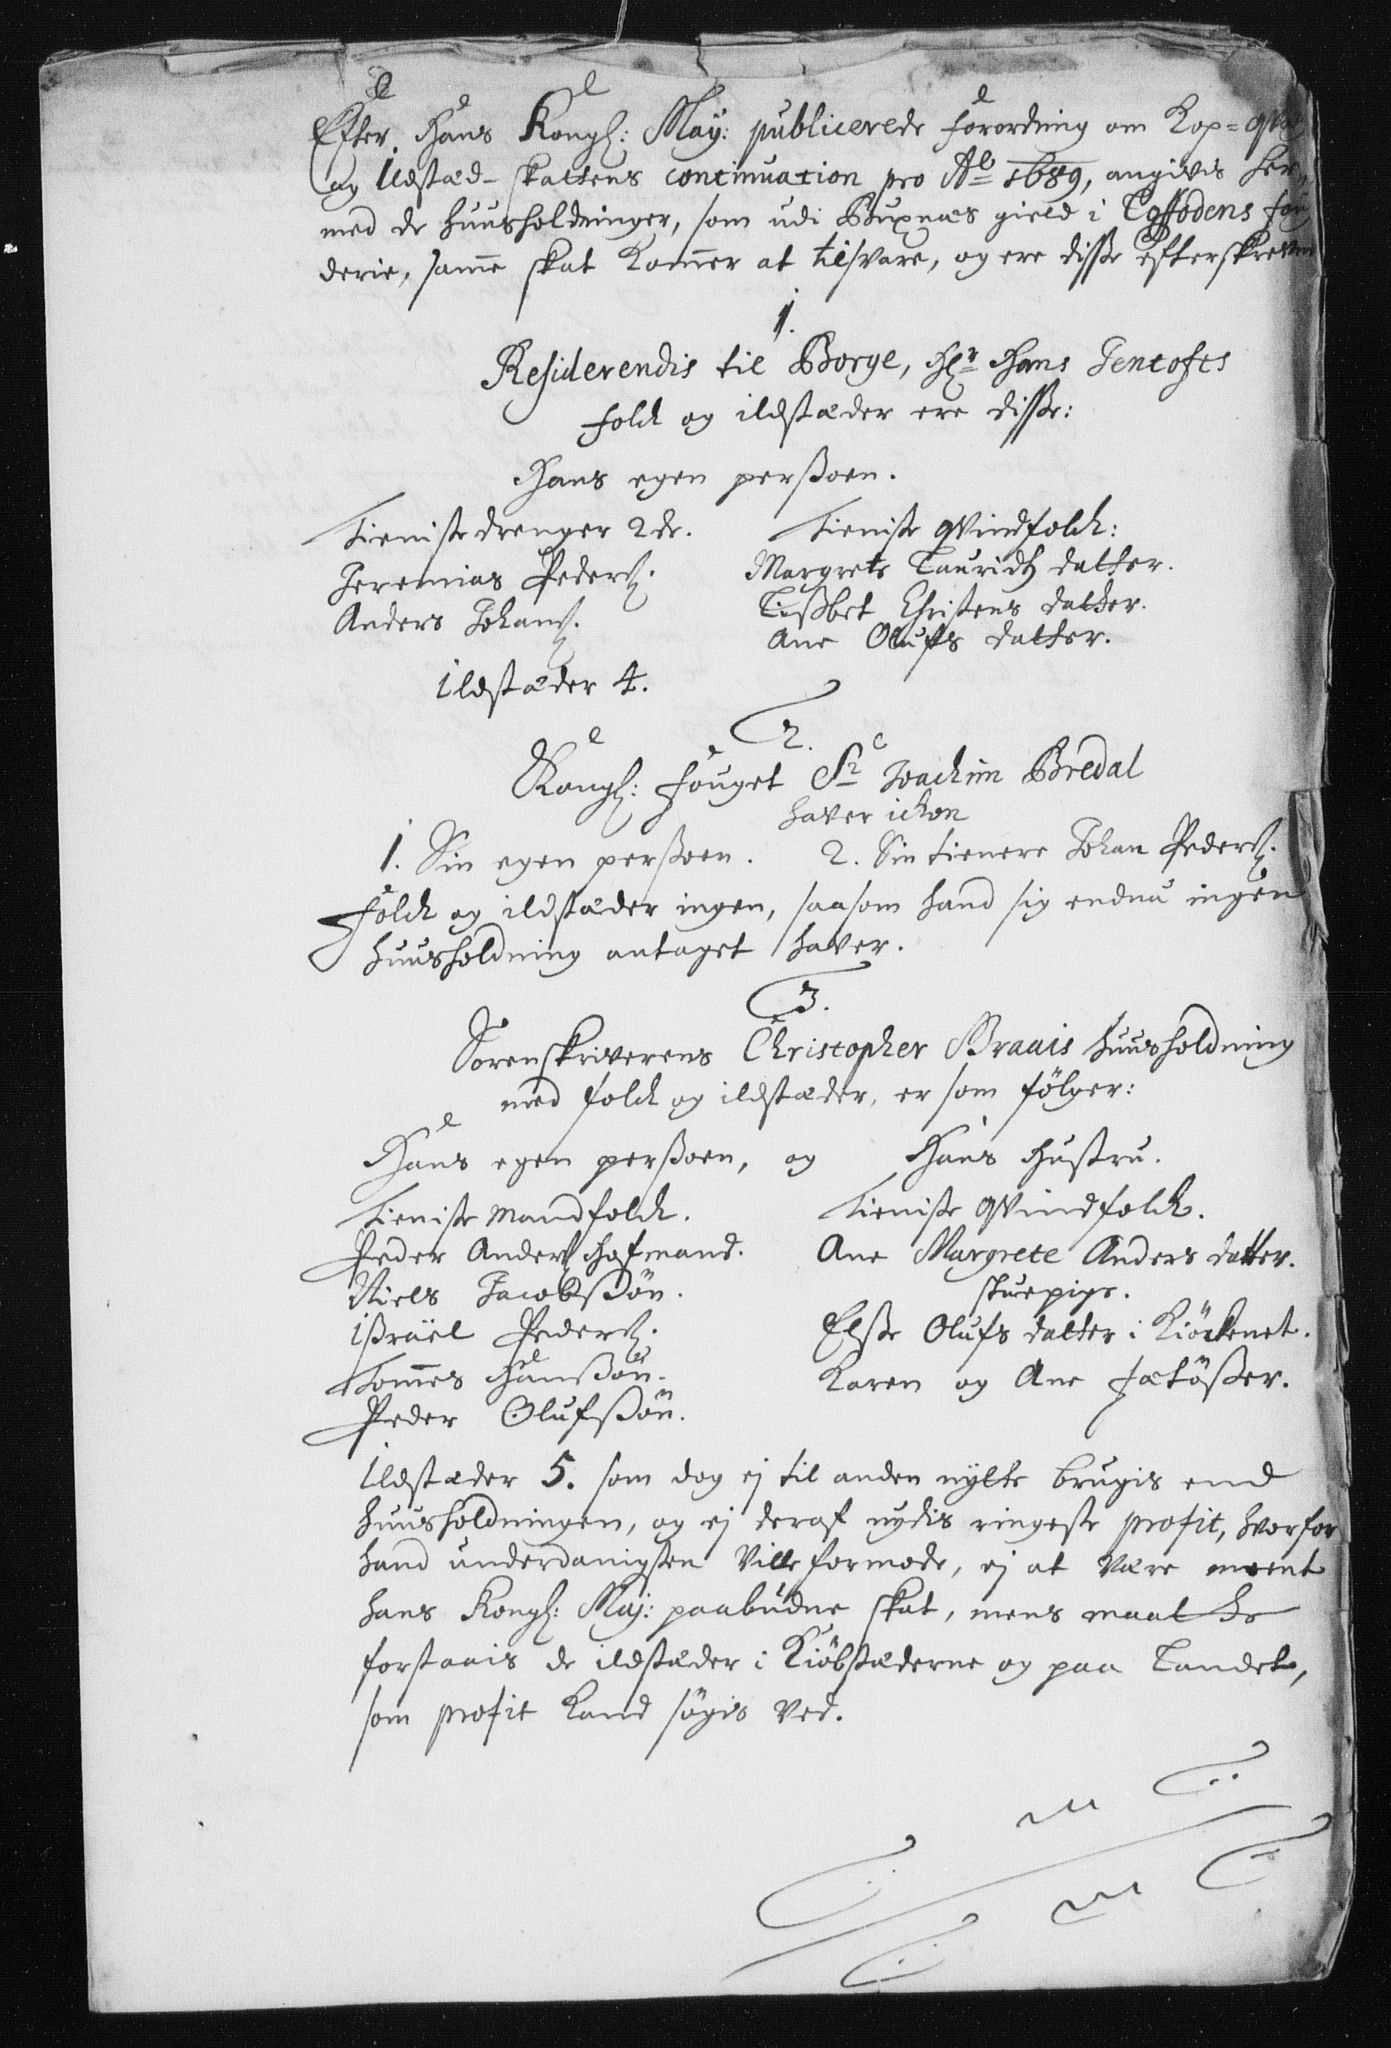 Efter Hans Kongl: May: publicerede forordning om Kop- qvæg
og Ildstæd- skattens continuation pro Ao 1689, angivis her,,
med de huusholdninger, som udi Buxnæs gield i Loffodens fou
derie, samme skat kommer at tilsvare, og ere disse efterskrevne
1.
Residerendis til Borge, Hr Hans Jentofts
folck og ildstæder ere disse:
Hans egen perßoen.
Tieniste drenger 2de. Tieniste qvindfolck:
Jeremias Peders. Margrete Lauridtz datter.
Anders Johans. Lißbet Christens datter.
Ane Olufs datter.
Ildstæder 4.
2.
Kongl: fouget Sr Joachim Bredal
haver ickon
1. Sin egen perßoen. 2. Sin tienere Johan Peders.
Folck og ildstæder ingen, saasom hand sig endnu ingen
huusholdning antaget haver.
3.
Sorenskriverens Christopher Braais huusholdning
med folck og ildstæder, er som fölger:
Hans egen perßoen, og Hans Hustru.
Tieniste mandfolck. Tieniste qvindfolck.
Peder Anders Hofmand. Ane Margrete Anders datter.
Niels Jacobßön. stuepige.
Ißräel Peders. Elße Olufs datter i Kiöckenet.
Tommes Hanßön. Karen og Ane fætößer.
Peder Olufßön.
Ildstæder 5. som dog ej til anden nytte brugis end
huusholdningen, og ej deraf nydis ringeste profit, hvorfor
hand underdanigsten ville formode, ej at være meent
hans Kongl: Maj: paabudne skat, mens maatte
forstaais de ildstæder i Kiöbstæderne og paa Landet,
som profit kand sögis ved.